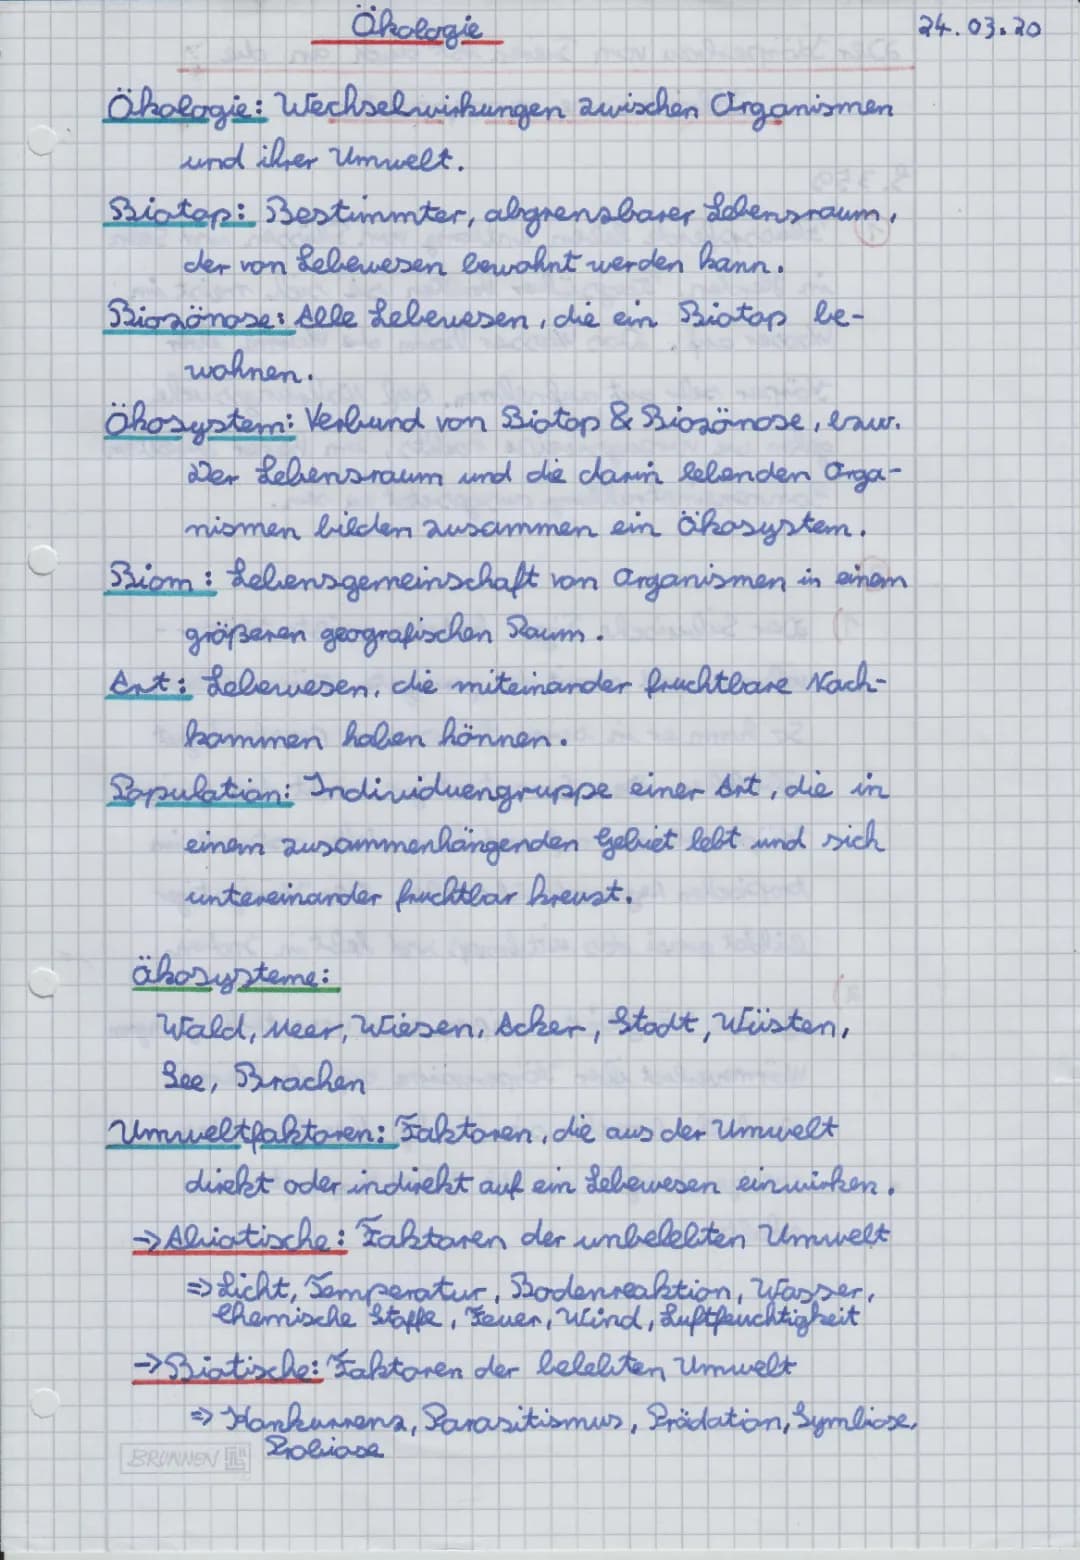 Ökologie
24.03.20
Ökologie: Wechselwirkungen zwischen Organismen
und ihrer Umwelt.
Biotop: Bestimmter, abgrenzbarer Lebensraum,
der von Lebewesen bewohnt werden kann.
Biozönose: Alle Lebewesen, die ein Biotop be-
wohnen.
Ökosystem: Verbund von Biotop & Biozönose, bzw.
Der Lebensraum und die darin lebenden Orga-
nismen bilden zusammen ein Ökosystem.
Biom: Lebensgemeinschaft von Organismen in einem
größeren geografischen Raum.
Art: Lebewesen, die miteinander fruchtbare Nach-
kommen haben können.
Population: Individuengruppe einer Art, die in
einem zusammenhängenden Gebiet lebt und sich
untereinander fruchtbar kreuzt.
Ökosysteme:
Wald, Meer, Wiesen, Acker, Stadt, Wüsten,
See, Brachen
Umweltfaktoren: Faktoren, die aus der Umwelt
direkt oder indirekt auf ein Lebewesen einwirken.
→Abiotische: Faktoren der unbelebten Umwelt
⇒Licht, Temperatur, Bodenreaktion, Wasser,
Chemische Stoffe, Feuer, Wind, Luftfeuchtigkeit
→Biotische: Faktoren der belebten Umwelt
⇒ Konkurrenz, Parasitismus, Prädation, Symbiose,
Probiose
BRUNNEN